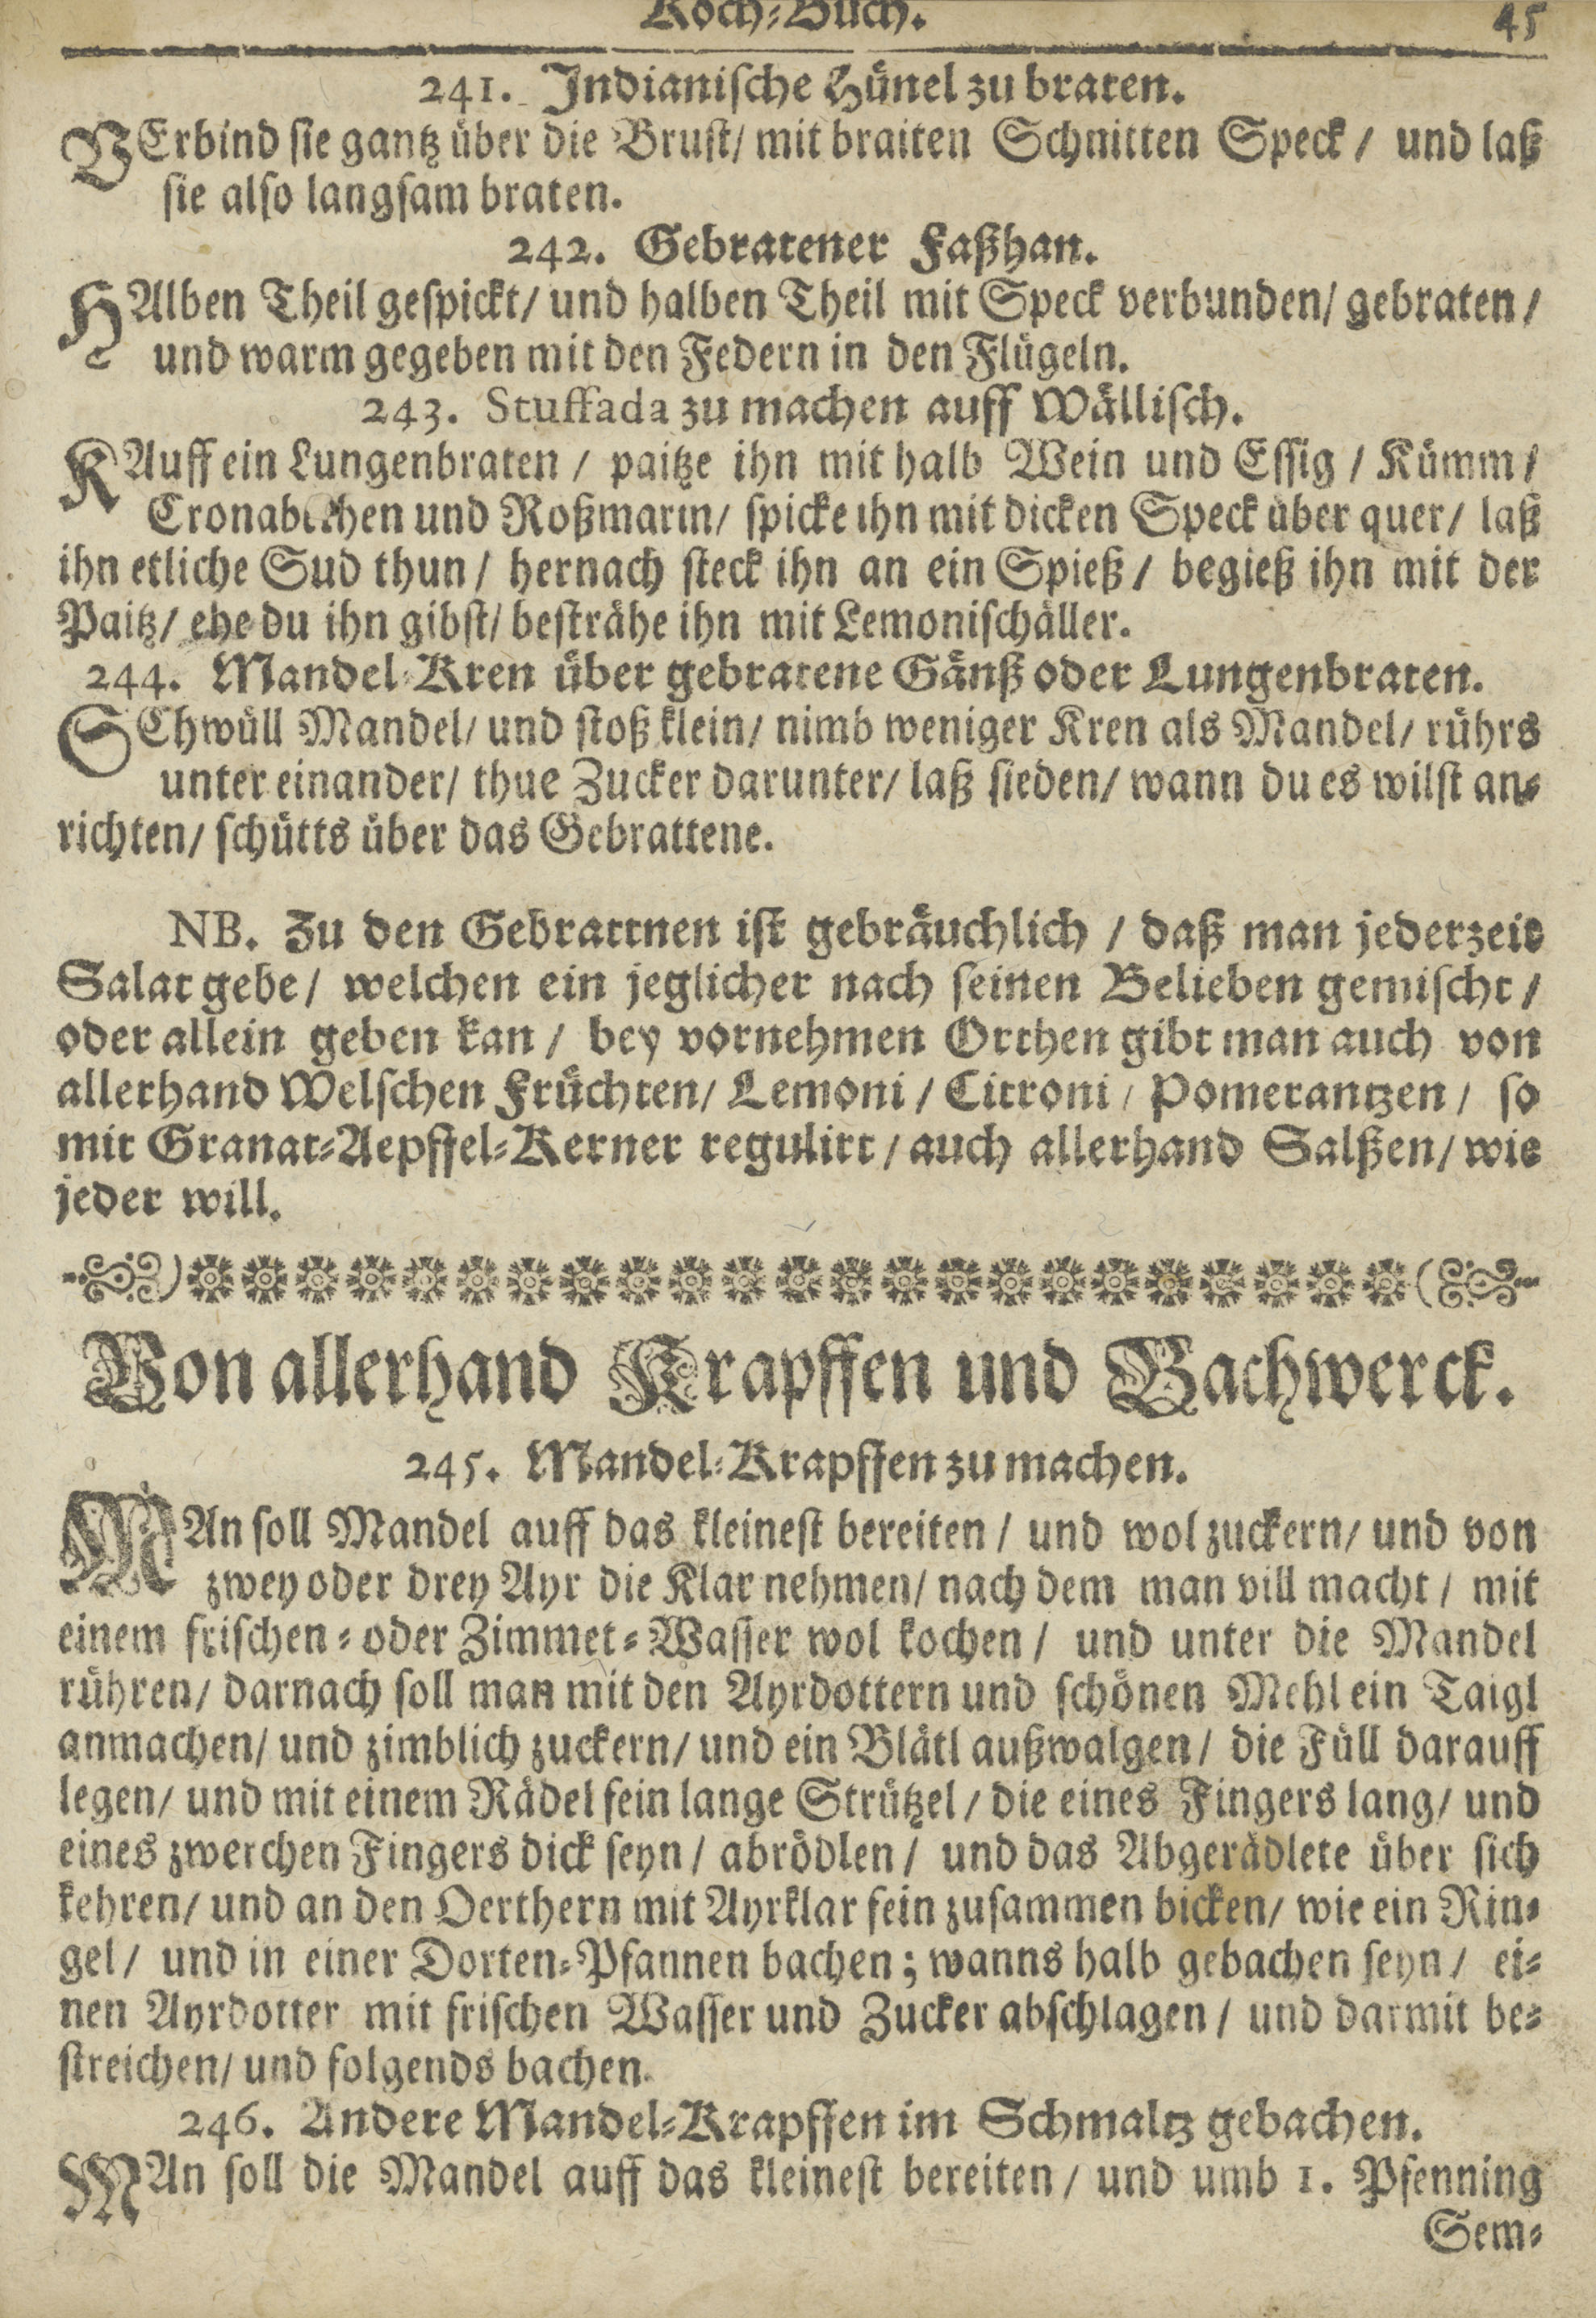 Koch-Buch. 45
241. Indianische Hünel zu braten.
VErbind sie gantz über die Brust/ mit braiten Schnitten Speck / und laß
sie also langsam braten.
242. Gebratener Faßhan.
HAlben Theil gespickt/ und halben Theil mit Speck verbunden/ gebraten /
und warm gegeben mit den Federn in den Flügeln.
243. Stuffada zu machen auff Wällisch.
KAuff ein Lungenbraten / paitze ihn mit halb Wein und Essig / Kümm /
und Roßmarin/ spicke ihn mit dicken Speck über quer/ laß
ihn etliche Sud thun / hernach steck ihn an ein Spieß / begieß ihn mit der
Paitz/ ehe du ihn gibst/ besträhe ihn mit Lemonischäller.
244. Mandel-Kren über gebratene Gänß oder Lungenbraten.
SChwüll Mandel/ und stoß klein/ nimb weniger Kren als Mandel/ rührs
unter einander/ thue Zucker darunter/ laß sieden/ wann du es wilst an-
richten/ schütts über das Gebrattene.
NB. Zu den Gebrattnen ist gebräuchlich / daß man jederzeit
Salat gebe / welchen ein jeglicher nach seinen Belieben gemischt /
oder allein geben kan / bey vornehmen Orthen gibt man auch von
allerhand Welschen Früchten/ Lemoni / Citroni / Pomerantzen / so
mit Granat-Aepffel-Kerner regulirt / auch allerhand Salßen/ wie
jeder will.
Von allerhand Krapffen und Bachwerck.
245. Mandel-Krapffen zu machen.
MAn soll Mandel auff das kleinest bereiten / und wol zuckern/ und von
zwey oder drey Ayr die Klar nehmen/ nach dem man vill macht / mit
einem frischen- oder Zimmet-Wasser wol kochen / und unter die Mandel
rühren/ darnach soll man mit den Ayrdottern und schönen Mehl ein Taigl
anmachen/ und zimblich zuckern/ und ein Blätl außwalgen / die Füll darauff
legen/ und mit einem Rädel fein lange Strützel / die eines Fingers lang/ und
eines zwerchen Fingers dick seyn / abrödlen / und das Abgerädlete über sich
kehren/ und an den Oerthern mit Ayrklar fein zusammen bicken/ wie ein Rin-
gel / und in einer Dorten-Pfannen bachen; wanns halb gebachen seyn / ei-
nen Ayrdotter mit frischen Wasser und Zucker abschlagen / und darmit be-
streichen/ und folgends bachen.
246. Andere Mandel-Krapffen im Schmaltz gebachen.
MAn soll die Mandel auff das kleinest bereiten / und umb 1. Pfenning
Sem-